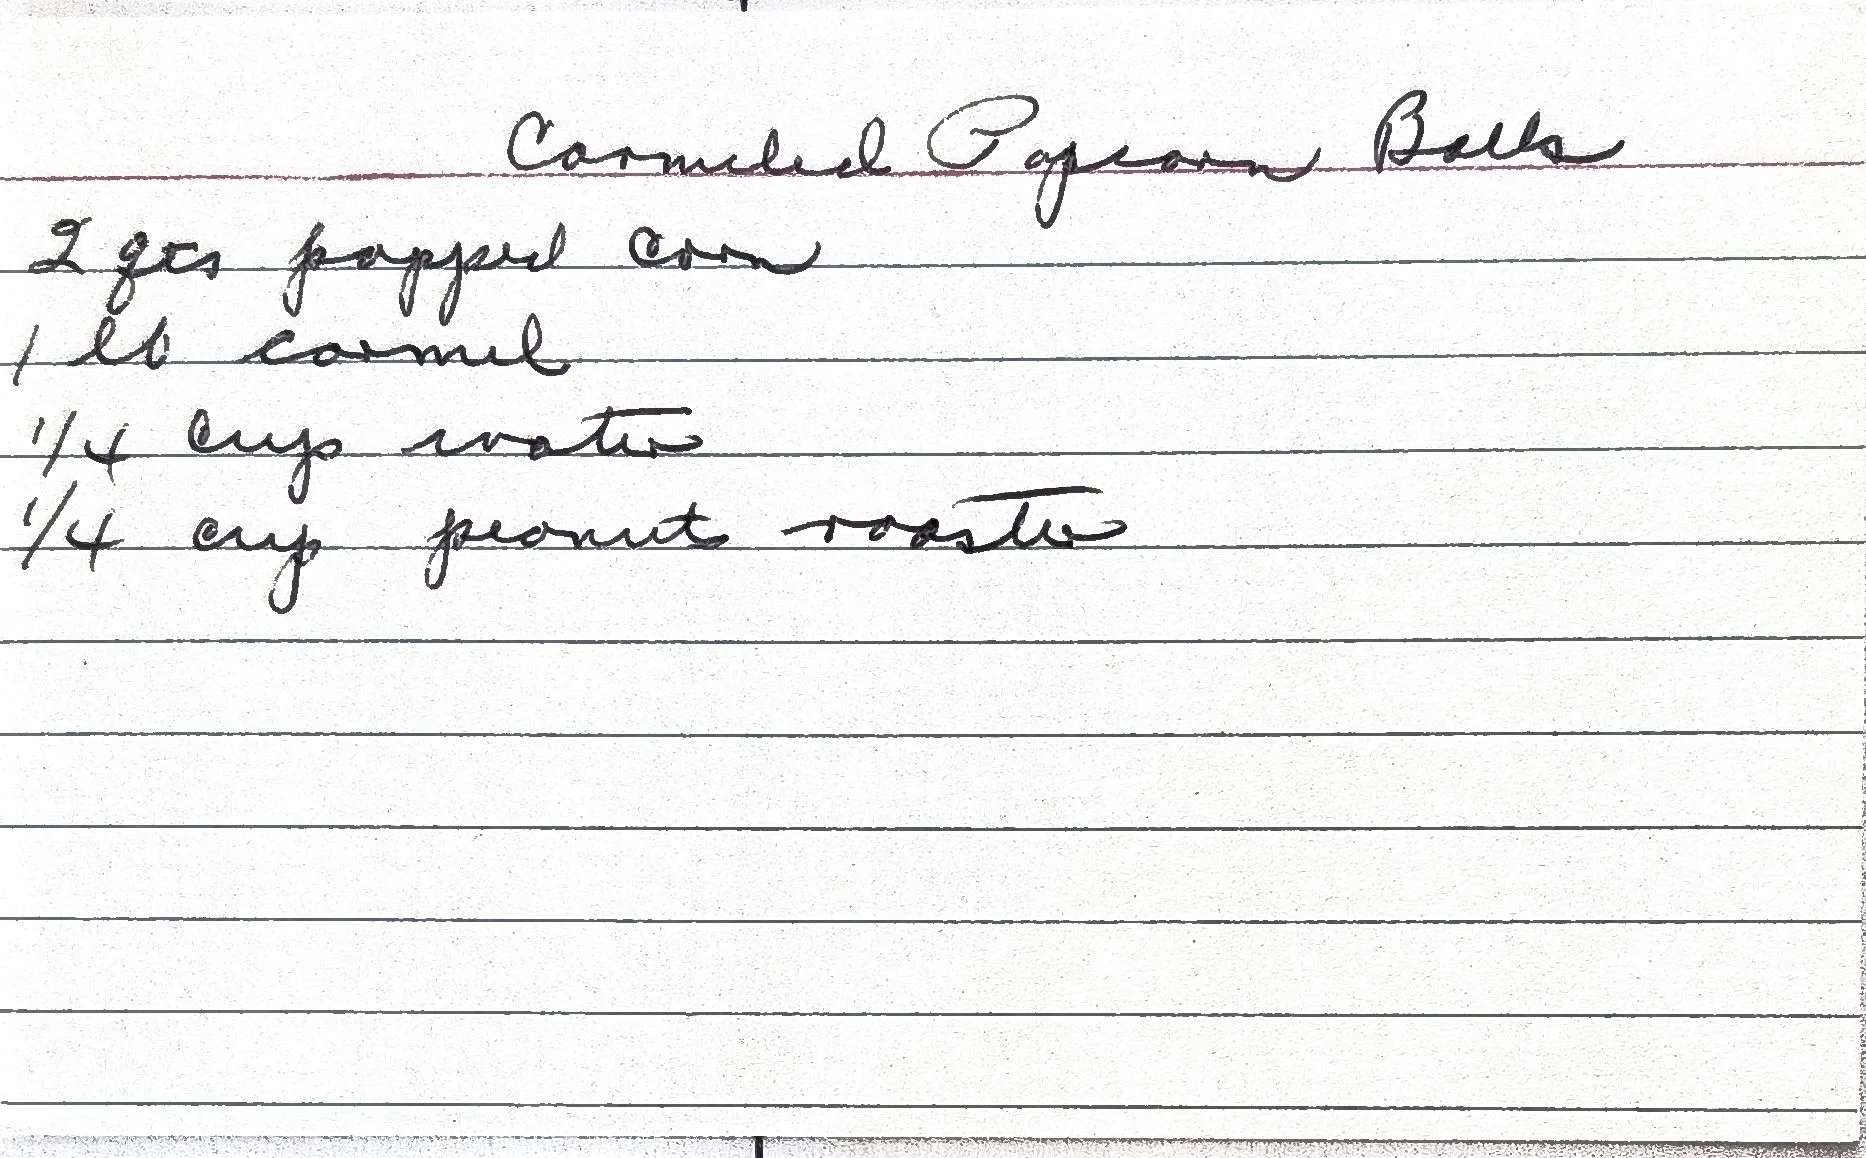 Carmeled Popcorn Balls
2 qts popped corn
1 lb carmel
1/4 cup water
1/4 cup peanut roaster